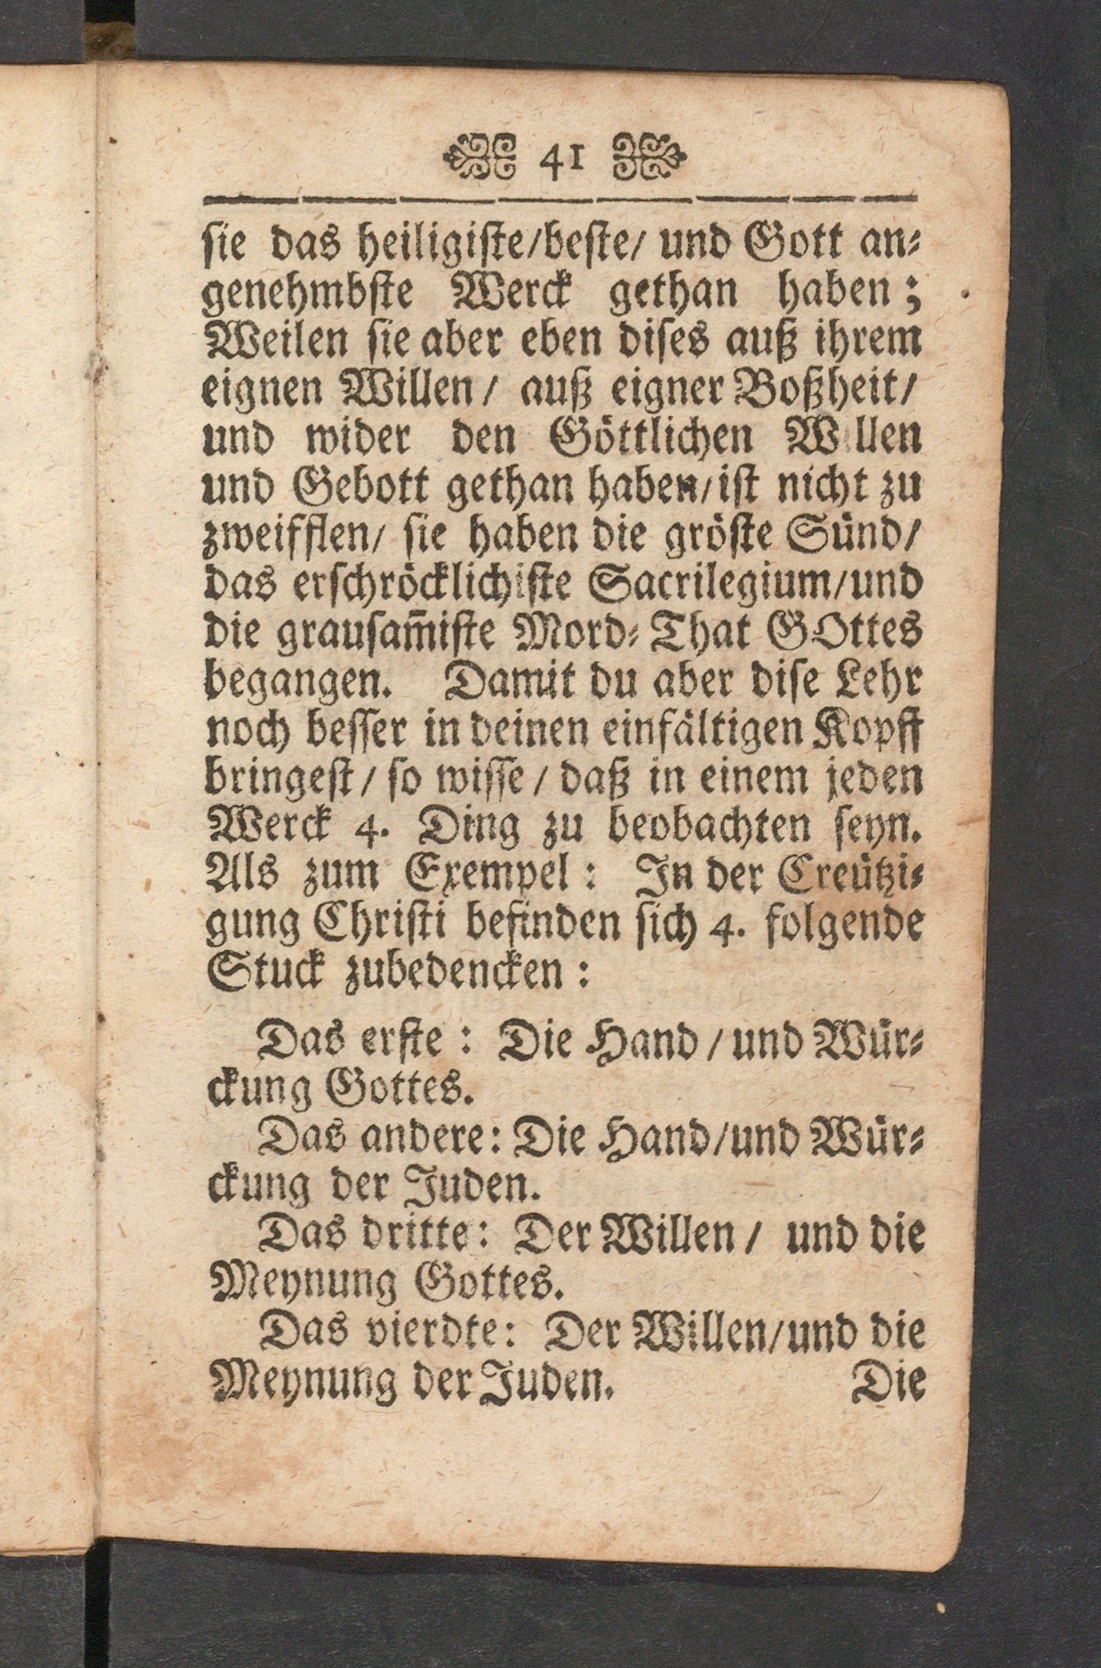 41
sie das heiligiste/beste/ und Gott an-
genehmbste Werck gethan haben;
Weilen sie aber eben dises auß ihrem
eignen Willen/ auß eigner Boßheit/
und wider den Göttlichen Willen
und Gebott gethan haben/ist nicht zu
zweifflen/ sie haben die gröste Sünd/
das erschröcklichiste Sacrilegium/und
die grausam̄iste Mord-That GOttes
begangen. Damit du aber dise Lehr
noch besser in deinen einfältigen Kopff
bringest/ so wisse/ daß in einem jeden
Werck 4. Ding zu beobachten seyn.
Als zum Exempel: In der Creützi-
gung Christi befinden sich 4. folgende
Stuck zubedencken:
Das erste: Die Hand/und Wür-
ckung Gottes.
Das andere: Die Hand/und Wür-
ckung der Juden.
Das dritte: Der Willen/ und die
Meynung Gottes.
Das vierdte: Der Willen/und die
Meynung der Juden. Die